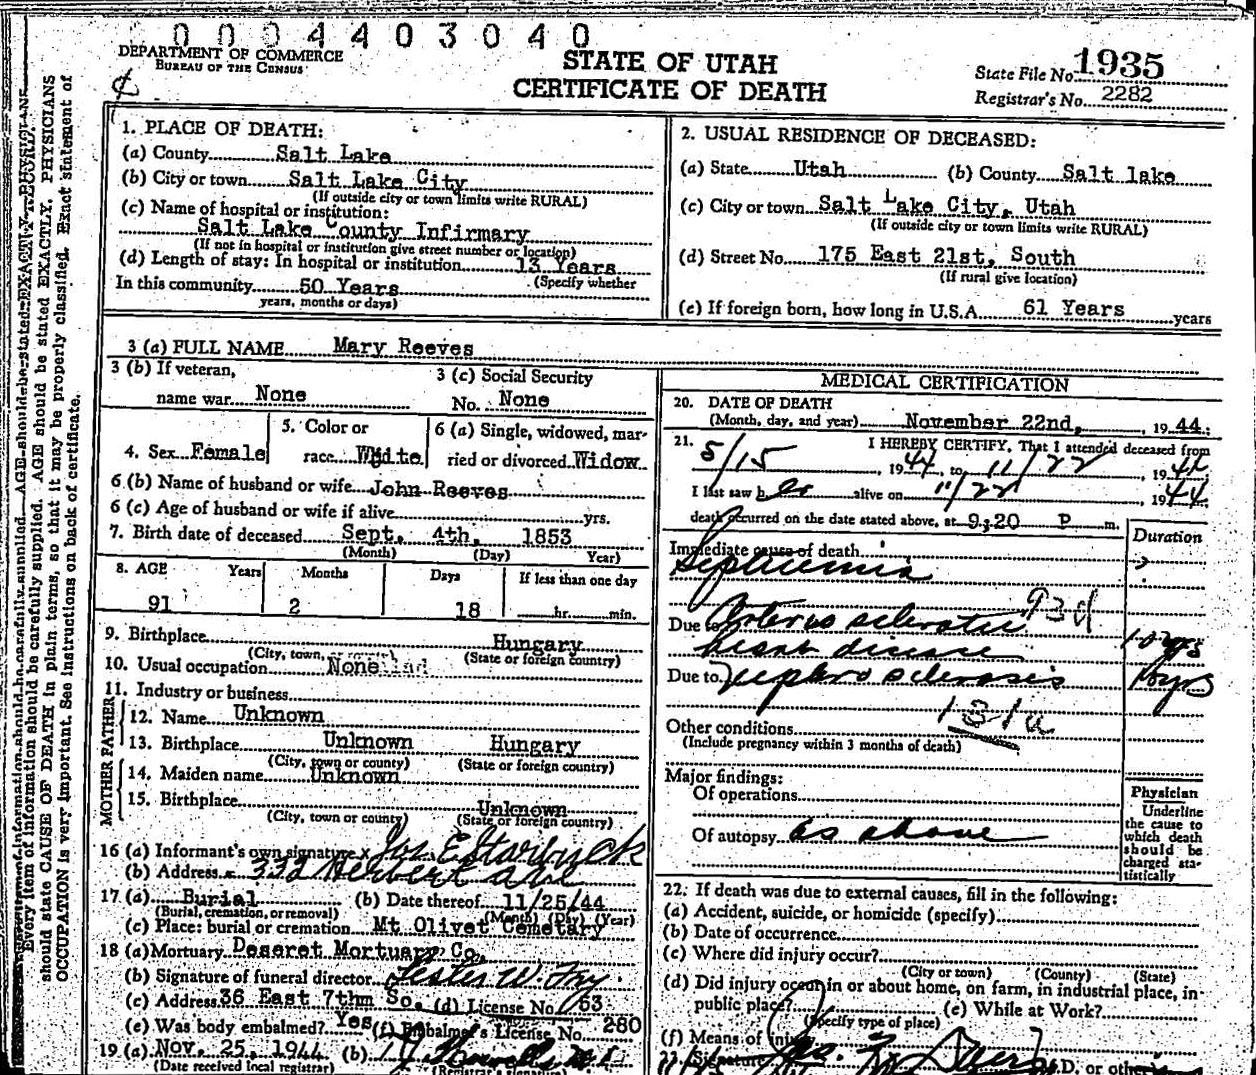 0 0 0 4 4 0 3 0 4 0
DEPARTMENT OF COMMERCE
BUREAU OF THE CENSUS
STATE OF UTAH
CERTIFICATE OF DEATH
State File No. 1935
Registrar's No. 2282
Every item of information should be carefully supplied. AGE should be stated EXACTLY. PHYSICIANS
should state CAUSE OF DEATH in plain terms, so that it may be properly classified. Exact statement of
OCCUPATION is very important. See instructions on back of certificate.
1. PLACE OF DEATH:
(a) County Salt Lake
(b) City or town Salt Lake City
(If outside city or town limits write RURAL)
(c) Name of hospital or institution:
Salt Lake County Infirmary
(If not in hospital or institution give street number or location)
(d) Length of stay: In hospital or institution 13 Years
(Specify whether
In this community 50 Years
years, months or days)
2. USUAL RESIDENCE OF DECEASED:
(a) State Utah (b) County Salt lake
(c) City or town Salt Lake City, Utah
(If outside city or town limits write RURAL)
(d) Street No. 175 East 21st, South
(If rural give location)
(e) If foreign born, how long in U.S.A. 61 Years years
3 (a) FULL NAME Mary Reeves
3 (b) If veteran,
name war None
3 (c) Social Security
No. None
4. Sex Female
5. Color or
race White
6 (a) Single, widowed, mar-
ried or divorced Widow
6 (b) Name of husband or wife John Reeves
6 (c) Age of husband or wife if alive yrs.
7. Birth date of deceased Sept. 4th, 1853
(Month) (Day) Year)
8. AGE Years Months Days If less than one day
91 2 18 hr. min.
9. Birthplace Hungary
(City, town, or county) (State or foreign country)
10. Usual occupation None
11. Industry or business
FATHER
12. Name Unknown
13. Birthplace Unknown Hungary
(City, town or county) (State or foreign country)
MOTHER
14. Maiden name Unknown
15. Birthplace Unknown
(City, town or county) (State or foreign country)
16 (a) Informant's own signature x Jos E Starbuck
(b) Address 332 Herbert Ave
17 (a) Burial (b) Date thereof 11/25/44
(Burial, cremation, or removal) (Month) (Day) (Year)
(c) Place: burial or cremation Mt Olivet Cemetary
18 (a) Mortuary Deseret Mortuary Co.
(b) Signature of funeral director Lester W. Fry
(c) Address 36 East 7thm So. (d) License No. 53
(e) Was body embalmed? Yes (f) Embalmer's License No. 280
19 (a) Nov. 25, 1944 (b)
(Date received local registrar) (Registrar's signature)
MEDICAL CERTIFICATION
20. DATE OF DEATH
(Month, day, and year) November 22nd, , 19 44
21. I HEREBY CERTIFY, That I attended deceased from
5/15 , 19 44, to 11/22 , 19 44
I last saw h er alive on 11/22 19 44
death occurred on the date stated above, at 9:20 P m.
Duration
Immediate cause of death
Septicemia ?
93d
Due to Arterio sclerotic
heart disease 10 yrs
Due to Nephro sclerosis 10 yrs
131a
Other conditions
(Include pregnancy within 3 months of death)
Major findings:
Of operations
Of autopsy as above
Physician
Underline
the cause to
which death
should be
charged sta-
tistically
22. If death was due to external causes, fill in the following:
(a) Accident, suicide, or homicide (specify)
(b) Date of occurrence
(c) Where did injury occur?
(City or town) (County) (State)
(d) Did injury occur in or about home, on farm, in industrial place, in
public place? (e) While at Work?
(Specify type of place)
(f) Means of Injury
23. Signature M.D. or other